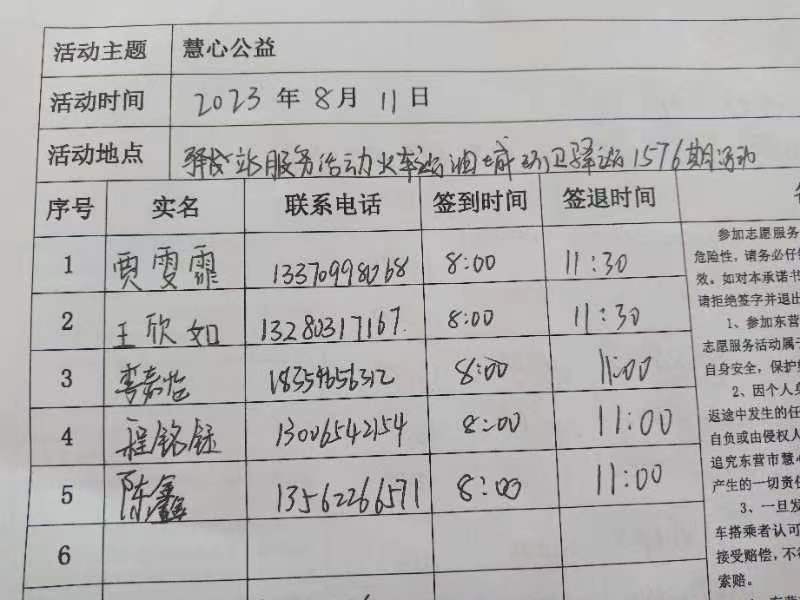 活动主题 慧心公益
活动时间 2023 年 8月 11日
活动地点 驿站服务活动火车站油城环卫驿站1576期活动
序号 实名 联系电话 签到时间 签退时间
1 贾雯霏 13370998068 8:00 11:30
2 王欣如 13280317167. 8:00 11:30
3 李嘉怡 18354656312 8:00 11:00
4 程铭钰 13006542154 8:00 11:00
5 陈鑫 13562266571 8:00 11:00
6
参加志愿服务
危险性，请务必仔
效。如对本承诺书
请拒绝签字并退出
1、参加东营
志愿服务活动属于
自身安全，保护
2、因个人身
返途中发生的任
自负或由侵权人
追究东营市慧心
产生的一切责任
3、一旦发
车搭乘者认可
接受赔偿，不
索赔。